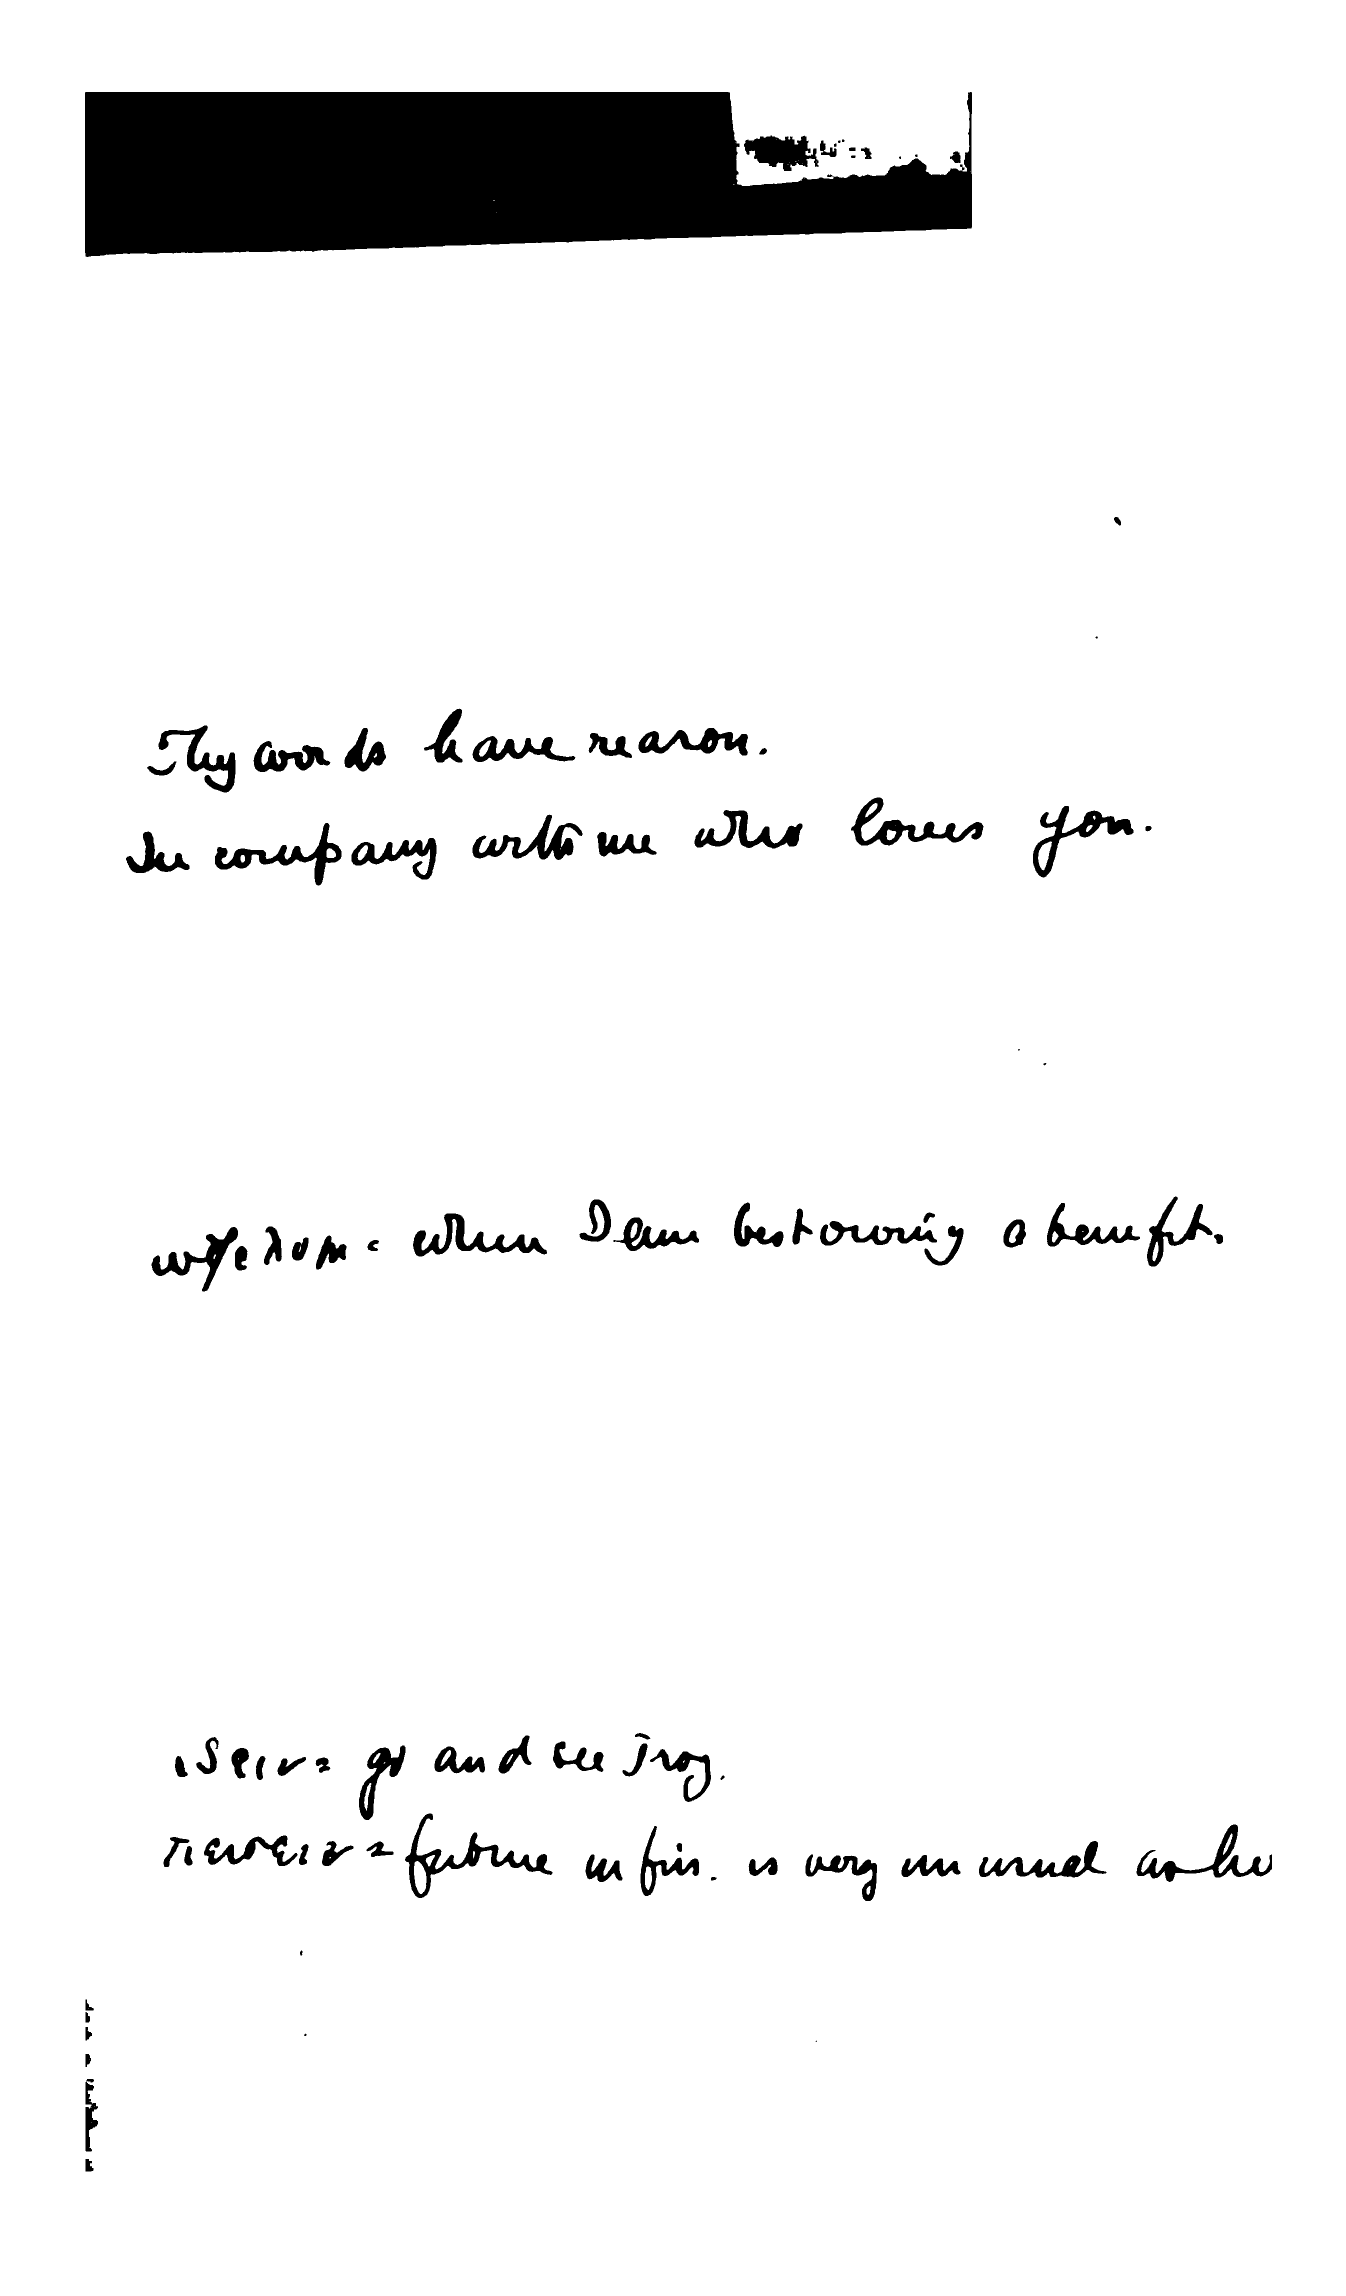 Thy words have reason.
In company with me who loves you.
ὠφελουμ = when I am bestowing a benefit.
ιδειν = go and see Troy.
πεισειν = future infin. is very unusual as he